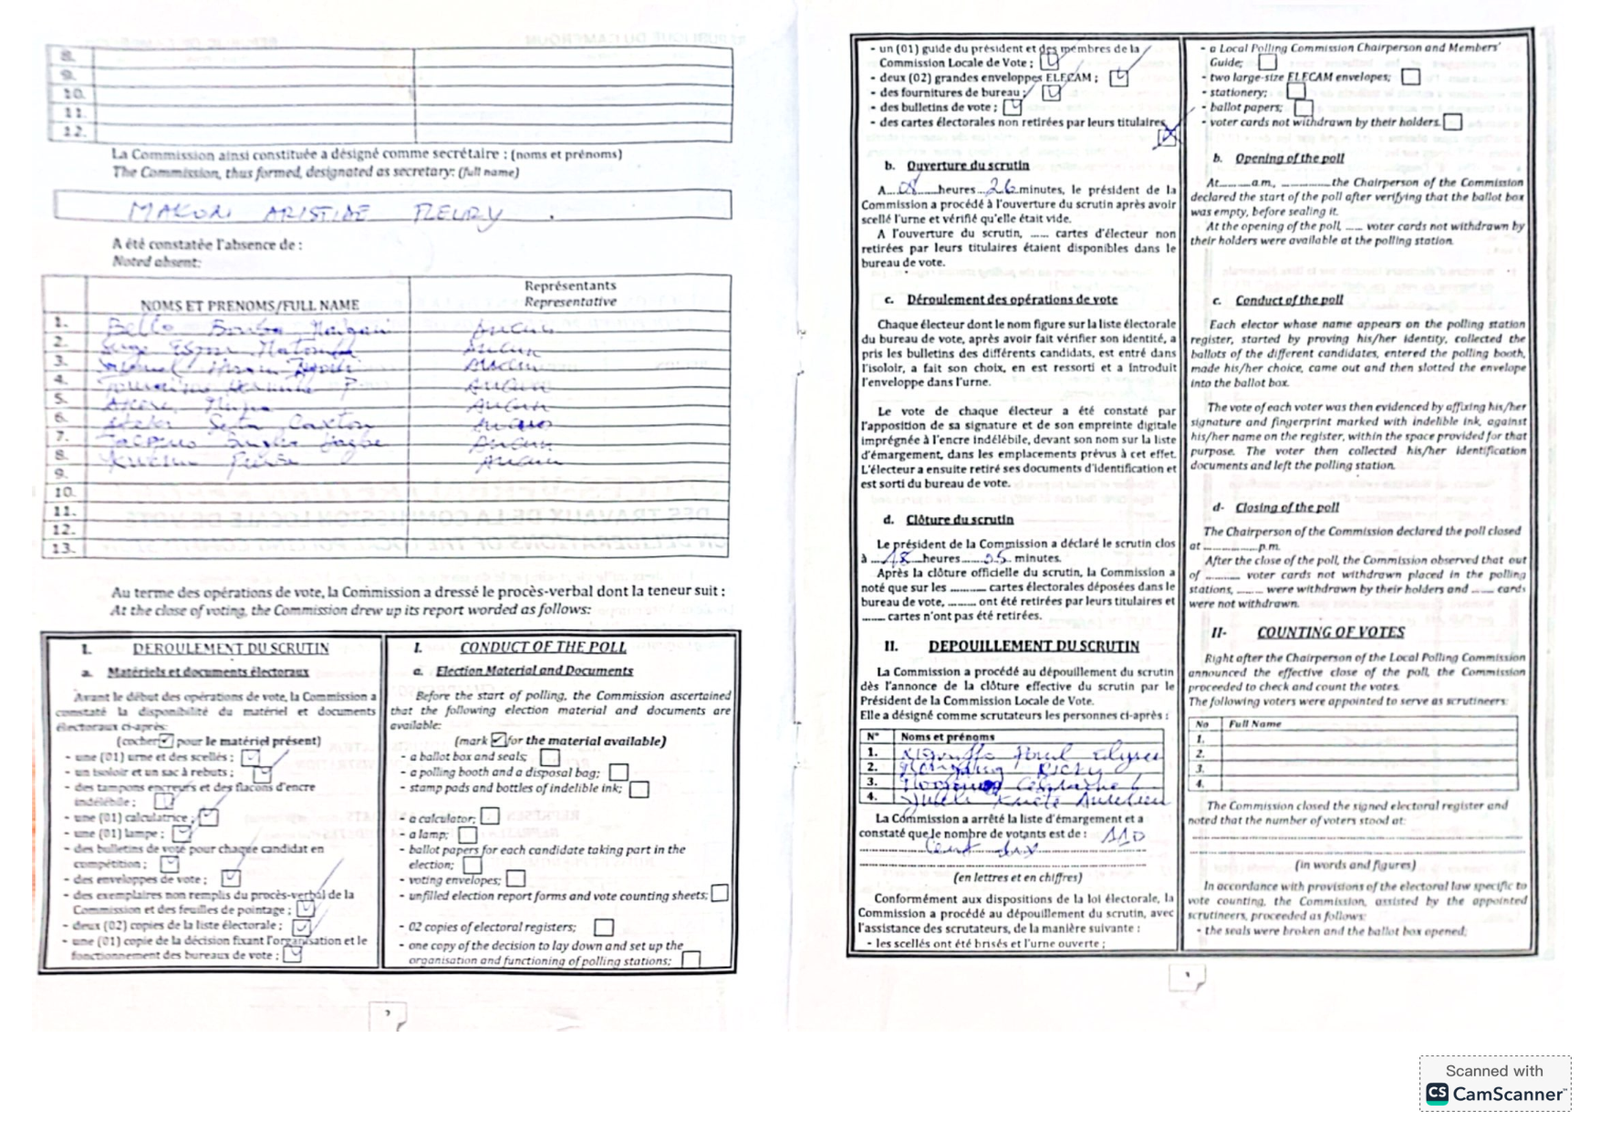 8.
9.
10.
11.
12.
La Commission ainsi constituée a désigné comme secrétaire : (noms et prénoms)
The Commission, thus formed, designated as secretary: (full name)
ARISTIDE FLEURY
A été constatée l'absence de :
Noted absent:
NOMS ET PRENOMS/FULL NAME
Représentants
Representative
1. Bello Bouba Aucun
2. Serge Espoir Matomba Aucun
3. Aucun
4. Aucun
5. Aucun
6. Seta Caxton Aucun
7. Aucun
8. Aucun
9.
10.
11.
12.
13.
Au terme des opérations de vote, la Commission a dressé le procès-verbal dont la teneur suit :
At the close of voting, the Commission drew up its report worded as follows:
I. DEROULEMENT DU SCRUTIN
a. Matériels et documents électoraux
Avant le début des opérations de vote, la Commission a
constaté la disponibilité du matériel et documents
électoraux ci-après
(cocher pour le matériel présent)
- une (01) urne et des scellés ;
- un isoloir et un sac à rebuts ;
- des tampons encreurs et des flacons d'encre
indélébile ;
- une (01) calculatrice ;
- une (01) lampe ;
- des bulletins de vote pour chaque candidat en
compétition ;
- des enveloppes de vote ;
- des exemplaires non remplis du procès-verbal de la
Commission et des feuilles de pointage ;
- deux (02) copies de la liste électorale ;
- une (01) copie de la décision fixant l'organisation et le
fonctionnement des bureaux de vote ;
I. CONDUCT OF THE POLL
a. Election Material and Documents
Before the start of polling, the Commission ascertained
that the following election material and documents are
available:
(mark for the material available)
- a ballot box and seals;
- a polling booth and a disposal bag;
- stamp pads and bottles of indelible ink;
- a calculator;
- a lamp;
- ballot papers for each candidate taking part in the
election;
- voting envelopes;
- unfilled election report forms and vote counting sheets;
- 02 copies of electoral registers;
- one copy of the decision to lay down and set up the
organisation and functioning of polling stations;
- un (01) guide du président et des membres de la
Commission Locale de Vote ;
- deux (02) grandes enveloppes ELECAM ;
- des fournitures de bureau ;
- des bulletins de vote ;
- des cartes électorales non retirées par leurs titulaires
b. Ouverture du scrutin
A 08 heures 26 minutes, le président de la
Commission a procédé à l'ouverture du scrutin après avoir
scellé l'urne et vérifié qu'elle était vide.
A l'ouverture du scrutin, ...... cartes d'électeur non
retirées par leurs titulaires étaient disponibles dans le
bureau de vote.
c. Déroulement des opérations de vote
Chaque électeur dont le nom figure sur la liste électorale
du bureau de vote, après avoir fait vérifier son identité, a
pris les bulletins des différents candidats, est entré dans
l'isoloir, a fait son choix, en est ressorti et a introduit
l'enveloppe dans l'urne.
Le vote de chaque électeur a été constaté par
l'apposition de sa signature et de son empreinte digitale
imprégnée à l'encre indélébile, devant son nom sur la liste
d'émargement, dans les emplacements prévus à cet effet.
L'électeur a ensuite retiré ses documents d'identification et
est sorti du bureau de vote.
d. Clôture du scrutin
Le président de la Commission a déclaré le scrutin clos
à 18 heures minutes.
Après la clôture officielle du scrutin, la Commission a
noté que sur les .......... cartes électorales déposées dans le
bureau de vote, ........ ont été retirées par leurs titulaires et
........ cartes n'ont pas été retirées.
II. DEPOUILLEMENT DU SCRUTIN
La Commission a procédé au dépouillement du scrutin
dès l'annonce de la clôture effective du scrutin par le
Président de la Commission Locale de Vote.
Elle a désigné comme scrutateurs les personnes ci-après :
N° Noms et prénoms
1.
2.
3.
4. Aurelien
La Commission a arrêté la liste d'émargement et a
constaté que le nombre de votants est de : 110
Cent dix
(en lettres et en chiffres)
Conformément aux dispositions de la loi électorale, la
Commission a procédé au dépouillement du scrutin, avec
l'assistance des scrutateurs, de la manière suivante :
- les scellés ont été brisés et l'urne ouverte ;
- a Local Polling Commission Chairperson and Members'
Guide;
- two large-size ELECAM envelopes;
- stationery;
- ballot papers;
- voter cards not withdrawn by their holders.
b. Opening of the poll
At........a.m., ............the Chairperson of the Commission
declared the start of the poll after verifying that the ballot box
was empty, before sealing it.
At the opening of the poll, ..... voter cards not withdrawn by
their holders were available at the polling station.
c. Conduct of the poll
Each elector whose name appears on the polling station
register, started by proving his/her identity, collected the
ballots of the different candidates, entered the polling booth,
made his/her choice, came out and then slotted the envelope
into the ballot box.
The vote of each voter was then evidenced by affixing his/her
signature and fingerprint marked with indelible ink, against
his/her name on the register, within the space provided for that
purpose. The voter then collected his/her identification
documents and left the polling station.
d- Closing of the poll
The Chairperson of the Commission declared the poll closed
at ..............p.m.
After the close of the poll, the Commission observed that out
of .......... voter cards not withdrawn placed in the polling
stations, ........ were withdrawn by their holders and ...... cards
were not withdrawn.
II- COUNTING OF VOTES
Right after the Chairperson of the Local Polling Commission
announced the effective close of the poll, the Commission
proceeded to check and count the votes.
The following voters were appointed to serve as scrutineers:
No Full Name
1.
2.
3.
4.
The Commission closed the signed electoral register and
noted that the number of voters stood at:
(in words and figures)
In accordance with provisions of the electoral law specific to
vote counting, the Commission, assisted by the appointed
scrutineers, proceeded as follows:
- the seals were broken and the ballot box opened;
Scanned with
CS CamScanner